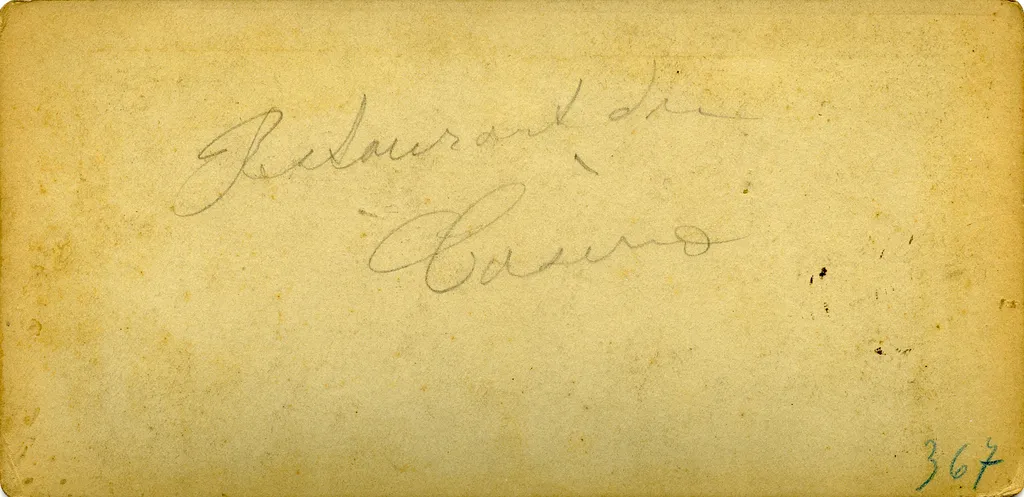 Restaurant du
Casino
367